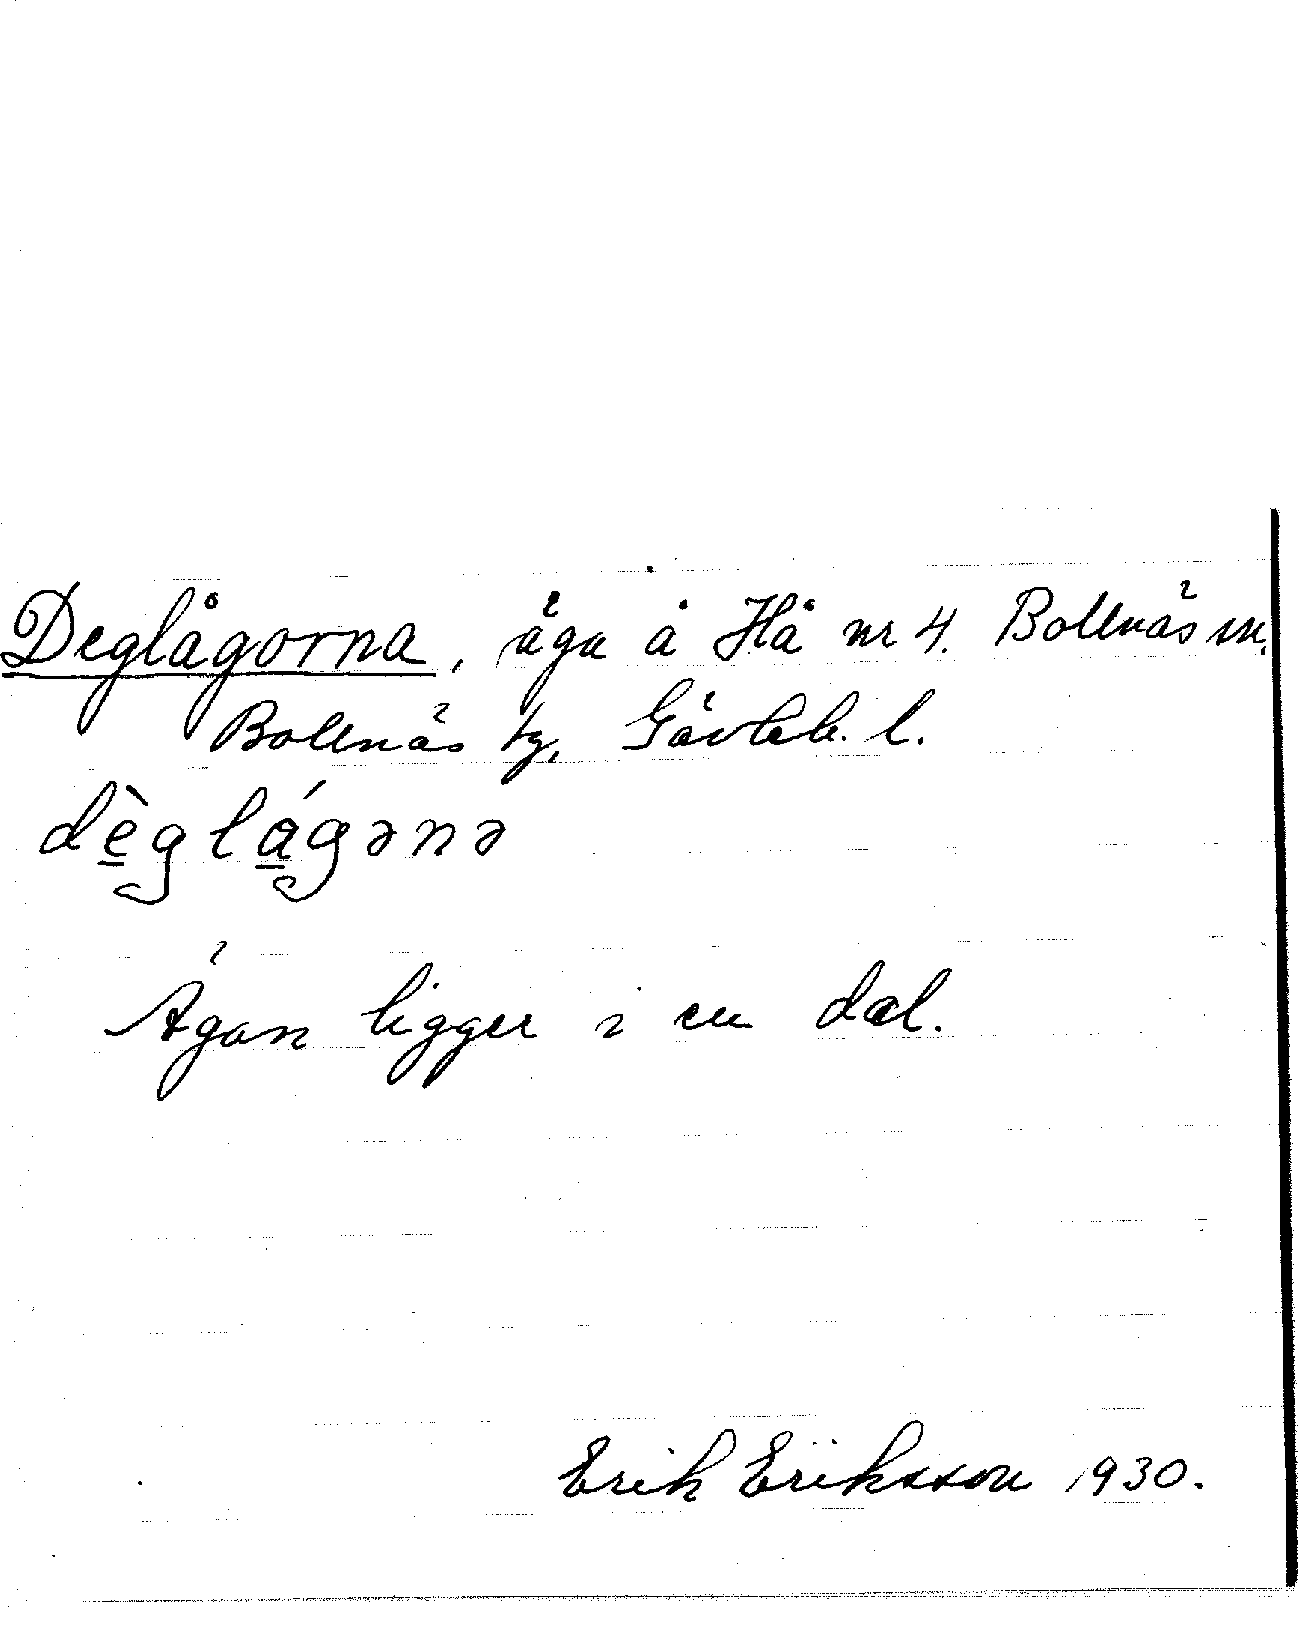 Deglågorna, äga å Hå nr 4. Bollnäs sn.
Bollnäs tg, Gävleb. l.
dèglágənə
Ägan ligger i en dal.
Erik Eriksson 1930.